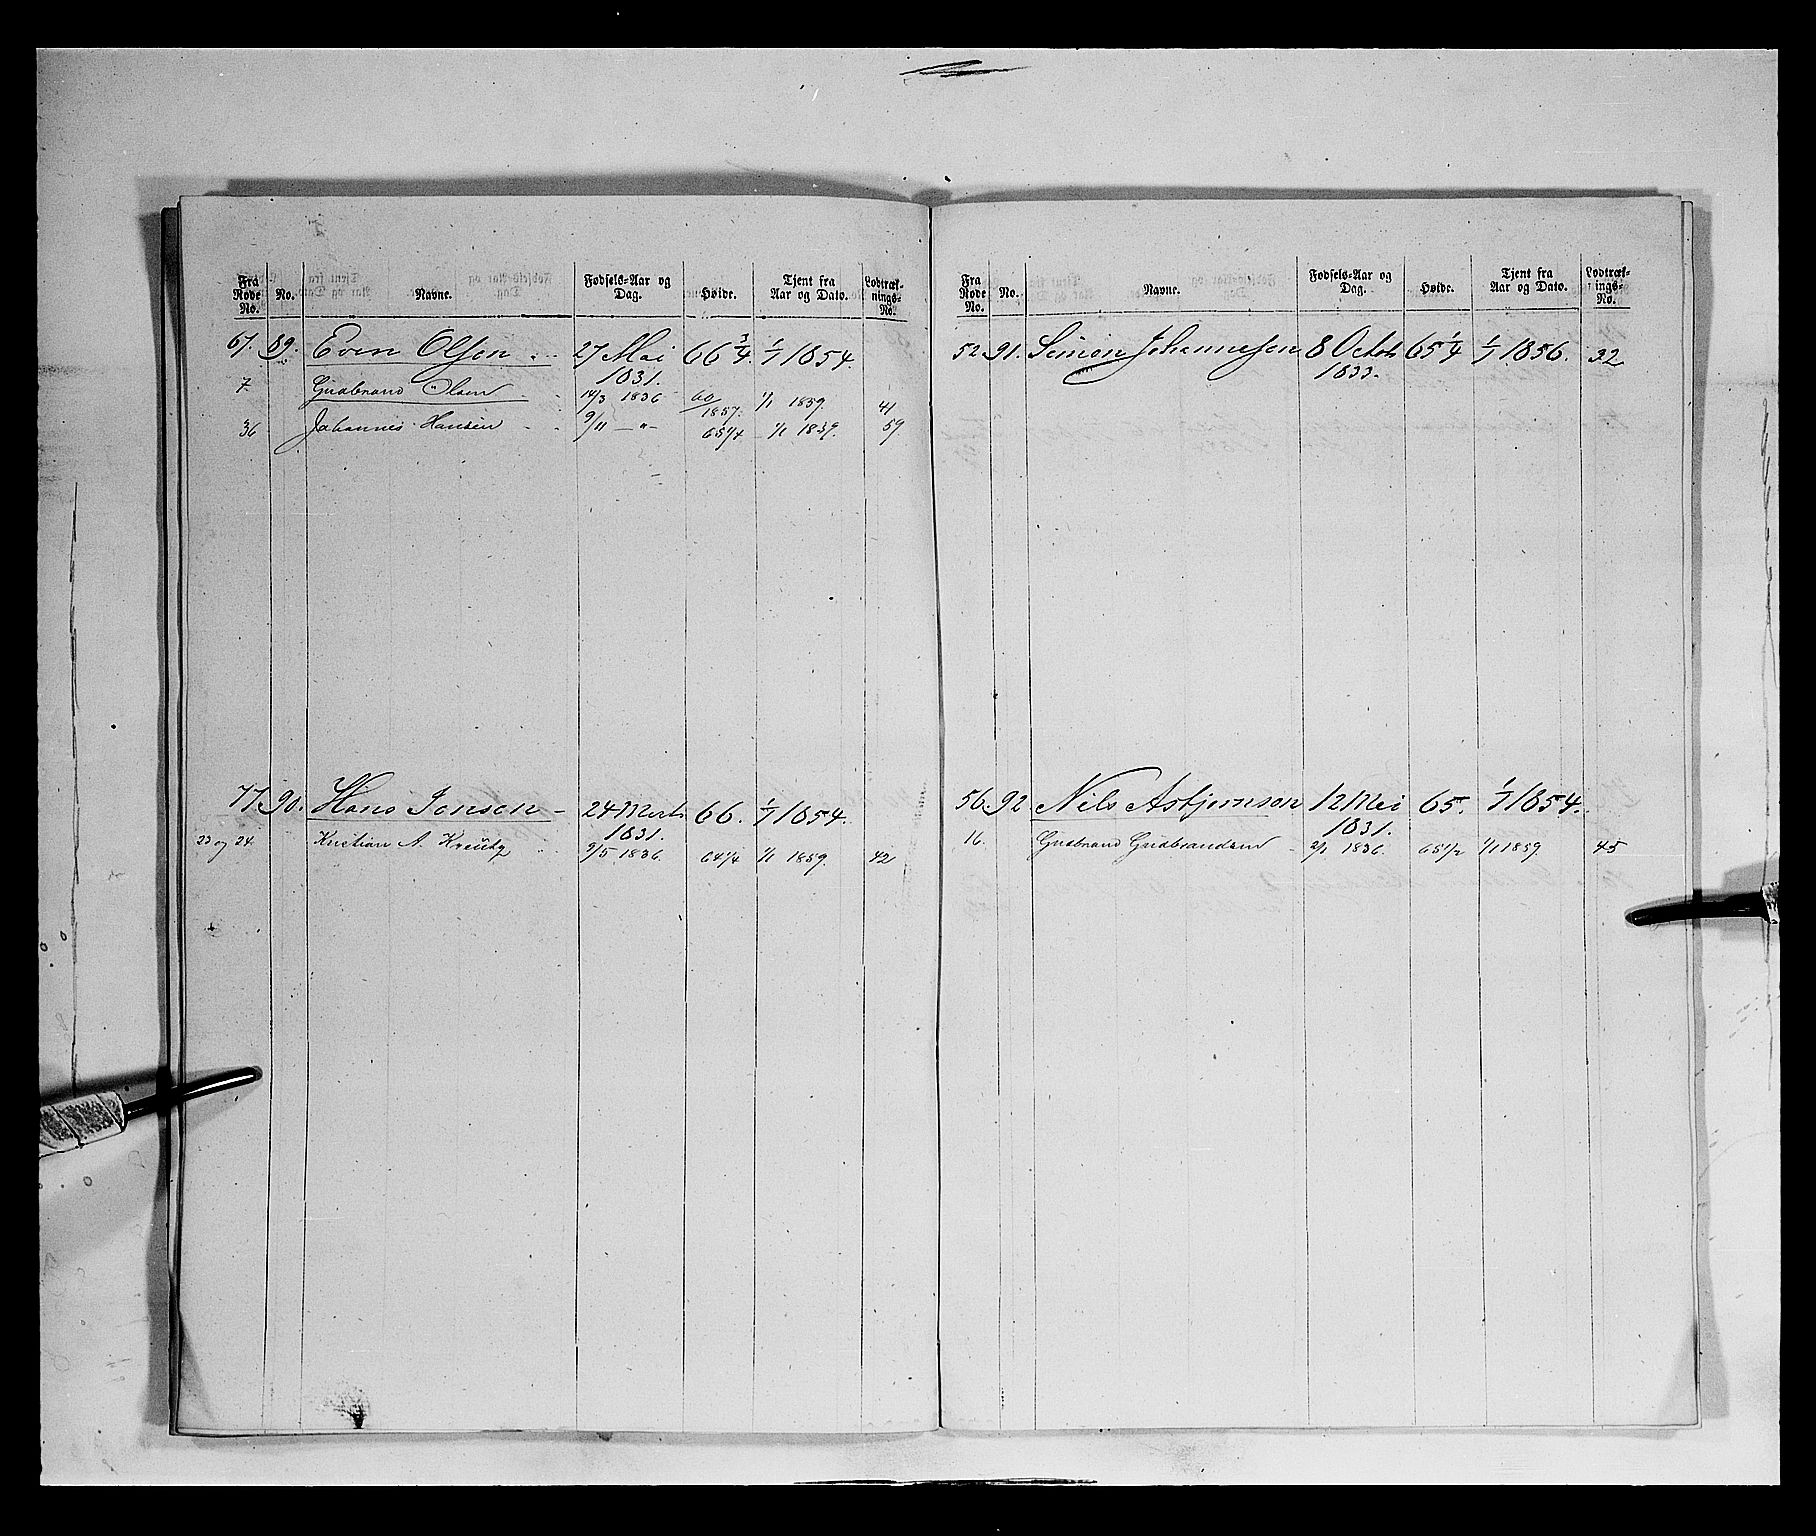 Fra Rode No. No. Navne. Fødsels-Aar og Dag. Høide. Tjent fra Aar og Dato. Lodtræk-nings-No.
67. 89. Even Olsen 27 Mai 1831. 66 3/4 1/7 1854.
7 Gudbrand Olsen 14/3 1836 60/1857. 1/1 1859. 41
36 Johannes Hansen 9/11 — " — 65 1/4 1/1 1859. 59
77. 90. Hans Jonsen 24 Marts 1831. 66. 1/7 1854.
23 og 24. Kristian A. Kreütz 9/5 1836. 64 1/4 1/1 1859. 42
Fra Rode No. No. Navne. Fødsels-Aar og Dag. Høide. Tjent fra Aar og Dato. Lodtræk-ings-No.
52. 91. Simon Johannesen 8 Octob 1833. 65 1/4 1/7 1856. 32
56. 92. Nils Asbjørnson 12 Mei 1831. 65. 1/7 1854.
16. Gudbrand Gudbrandsen 2/1 1836. 65 1/2 1/1 1859. 45